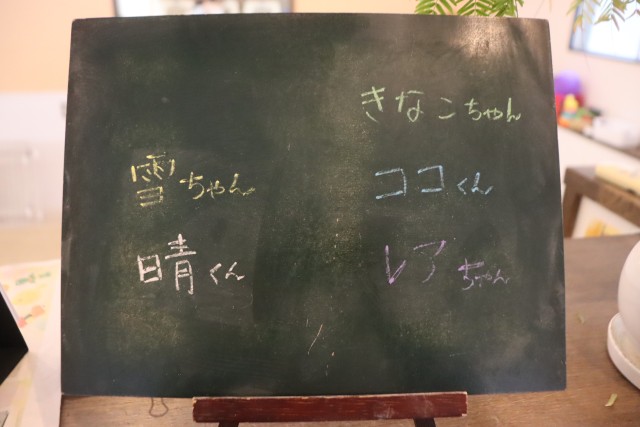 きなこちゃん
雪ちゃん
ココくん
晴くん
レアちゃん